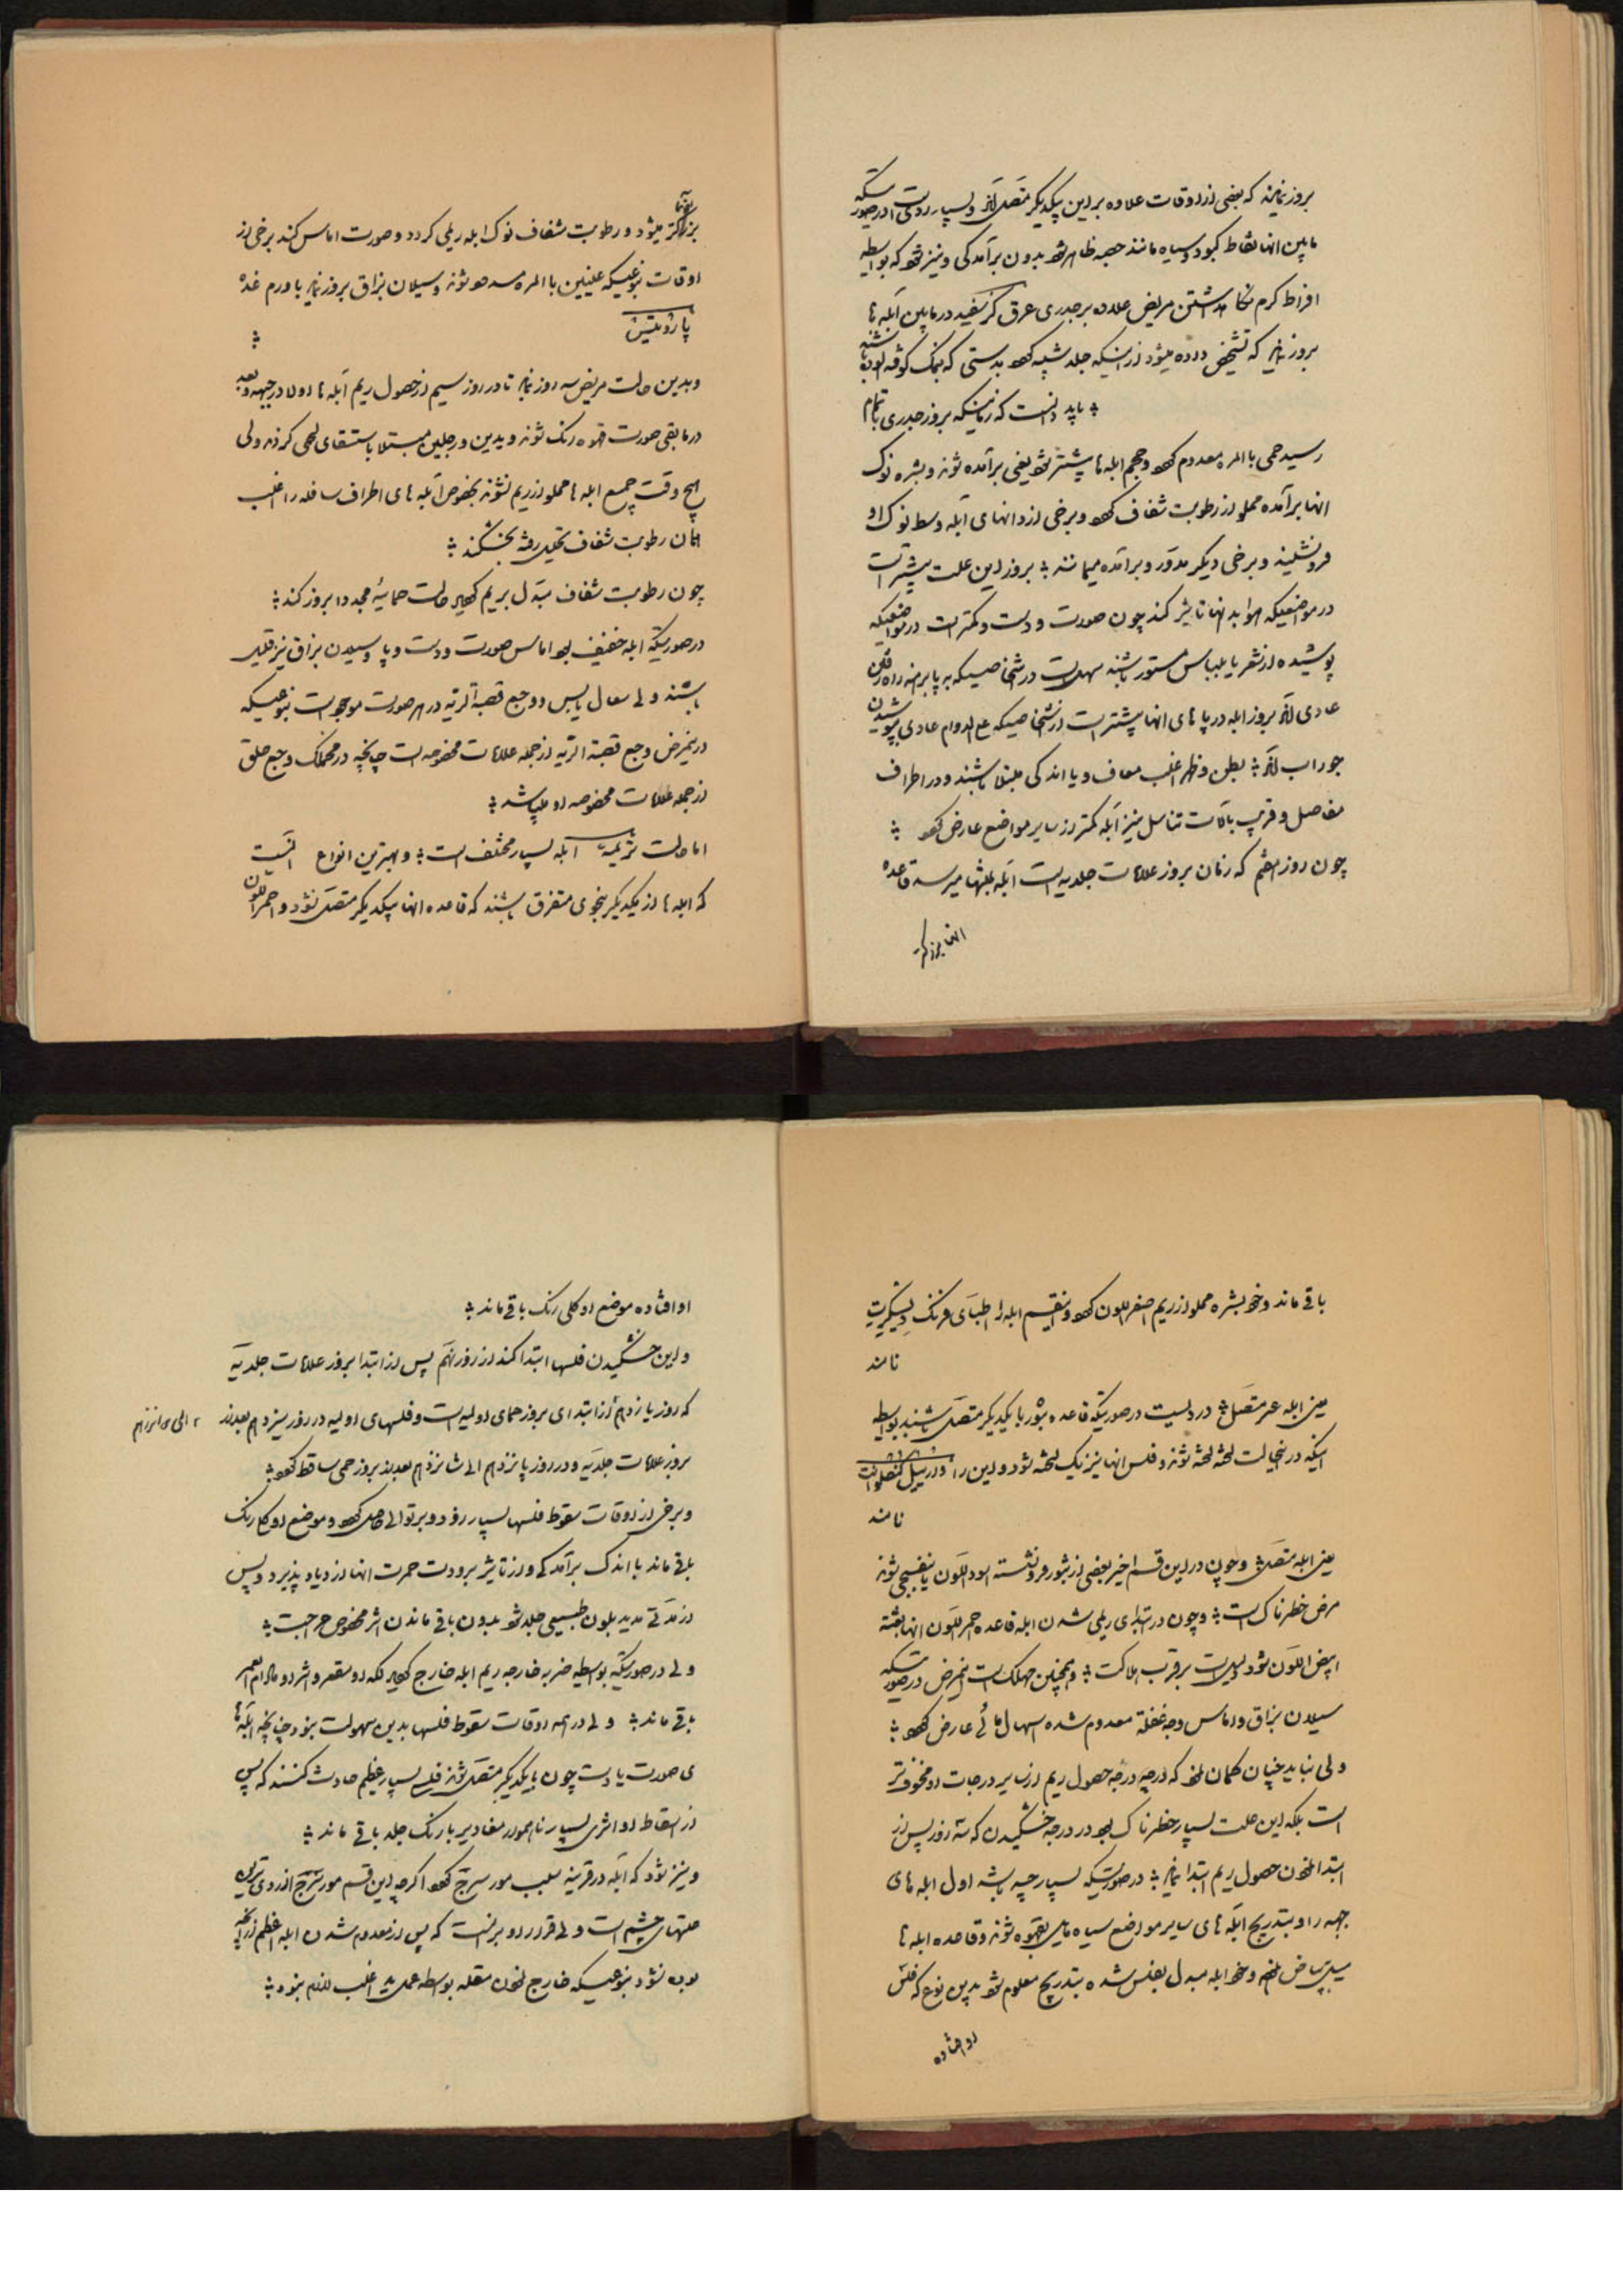 بروز نمایند که بعضی از اوقات علاوه بر این بیکدیگر متصل‌اند و بسیار ردی است در صورتیکه
مابین انها نقاط کبود و سیاه مانند حصبه ظاهر شود بدون برآمدگی و نیز شود که بواسطه
افراط گرم نگاه داشتن مریض علاوه بر جدری عرق گز سفید در مابین آبله ها
بروز نماید که تشخیص داده میشود از اینکه جلد شبیه بود بدستی که بنمک کوفته الوده باشند
؛ باید دانست که زمانیکه بروز جدری باتمام
رسید حمی بالمره معدوم شود و حجم ابله ها بیشتر شود یعنی برآمده شوند و بشره نوک
انها برآمده مملو از رطوبت شفاف شود و برخی از دانهای آبله وسط نوک او
فرو نشیند و برخی دیگر مدور و برآمده میمانند ؛ بروز این علت بیشتر است
در مواضعیکه هوا بدانها تاثیر کند چون صورت و دست و کمتر است در مواضعیکه
پوشیده از شعر یا بلباس مستور باشند سهل است در اشخاصیکه به پا برهنه راه رفتن
عادی‌اند بروز ابله در پا های انها بیشتر است از اشخاصیکه علی الدوام عادی بپوشیدن
جوراب‌اند ؛ بطن و ظهر اغلب معاف و یا اندکی مبتلا باشند و در اطراف
مفاصل و قریب بآلات تناسل نیز آبله کمتر از سایر مواضع عارض شود ؛
چون روز هفتم که زمان بروز علامات جلدیه است ابله بمنتها میرسد قاعده
انها بزرگتر
بزرگتر میشود و رطوبت شفاف نوک ابله ریمی گردد و صورت اماس کند برخی از
اوقات بنوعیکه عینین بالمره مسدود شوند و سیلان بزاق بروز نماید با ورم غده
پاروتیتیس ؛
و بدین حالت مریض سه روز نماید تا در روز سیم از حصول ریم آبله ها اولا در جبهه و بعد
در مابقی صورت قهوه رنگ شوند و یدین و رجلین مبتلا باستسقای لحمی گردند ولی
هیچ وقت جمیع ابله ها مملو از ریم نشوند بخصوص آبله های اطراف سافله را اغلب
همان رطوبت شفاف تحلیل رفته بخشکند ؛
چون رطوبت شفاف مبدل بریم گردید حالت حمائیه مجددا بروز کند ؛
در صورتیکه ابله خفیف بود اماس صورت و دست و پا و سیلان بزاق نیز قلیل
باشند ولی سعال یابس و وجع قصبة الریه در هر صورت موجود است بنوعیکه
در این مرض وجع قصبة الریه از جمله علامات مخصوصه است چنانچه در مخملک وجع حلق
از جمله علامات مخصوصه او میباشد ؛
اما حالت ابله بسیار مختلف است ؛ و بهترین انواع انست
که ابله ها از یکدیگر بنحوی متفرق باشند که قاعده انها بیکدیگر متصل نشود و احمر اللون
باقی ماند و خود بشره مملو از ریم اصفر اللون بود و اینقسم ابله را اطبای فرنک دیسکریت
نامند
یعنی ابله غیر متصل ؛ در دلیست در صورتیکه قاعده بثور با یکدیگر متصل باشند بواسطه
اینکه در اینحالت لخته لخته شوند و فلس انها نیز یک لخته شود و این را
نامند
یعنی ابله متصل ؛ و چون در این قسم اخیر بعضی از بثور فرو نشسته اسود اللون یا بنفسجی شوند
مرض خطرناک است ؛ و چون در ابتدای ریمی شدن ابله قاعده حمر اللون انها بغتة
ابیض اللون شود دلیل است بر قرب هلاکت ؛ و همچنین مهلک است اینمرض در صورتیکه
سیلان بزاق و اماس وجه غفلة معدوم شده اسهال مائی عارض شود ؛
ولی نباید چنان گمان نمود که درجه حصول ریم از سایر درجات او مخوف تر
است بلکه این علت بسیار خطرناک بود در درجه خشکیدن که سه روز پس از
ابتدا نمودن حصول ریم ابتدا نماید ؛ در صورتیکه بسیار چه باشد اول ابله های
جبهه را و بتدریج آبله های سایر مواضع سیاه مایل بقهوه شوند و قاعده ابله ها
و خود ابله مبدل بفلس شده بتدریج معلوم شود بدین نوع که فلس
او افتاده
او افتاده موضع او گلی رنگ باقی ماند ؛
و این خشکیدن فلسها ابتدا کند از روز نهم پس از ابتدا بروز علامات جلدیه
که روز یازدهم از ابتدای بروز حمای اولیه است و فلسهای اولیه در روز سیزدهم بعد از
بروز علامات جلدیه و در روز پانزدهم الی شانزدهم بعد از بروز حمی ساقط شوند ؛
و برخی از اوقات سقوط فلسها بسیار زود و بر توالی حاصل شود و موضع او گلی رنگ
باقی ماند با اندک برآمدگی و از تاثیر برودت حمرت انها ازدیاد پذیرد و پس
از مدتی مدید بلون طبیعی جلد شود بدون باقی ماندن اثر مخصوص جراحت ؛
ولی در صورتیکه بواسطه ضربه خارجه ریم ابله خارج گردید لکه او مقعر و اثر او مادام العمر
باقی ماند ؛ ولی در همه اوقات سقوط فلسها بدین سهولت نبود چنانچه ابله ها
ی صورت یا دست چون با یکدیگر متصل شوند فلسی بسیار عظیم حادث کنند که پس
از اسقاط او اثری بسیار ناهموار مغایر با رنگ جلد باقی ماند ؛
و نیز شود که ابله در قرنیه سبب مورسرج شود اگرچه این قسم مورسرج از ردی ترین
علتهای چشم است ولی قرار او بر اینست که پس از معدوم شدن ابله اعظم از آنچه
بوده نشود بنوعیکه خارج نمودن مقله بواسطه عمل ید اغلب لازم نبود ؛